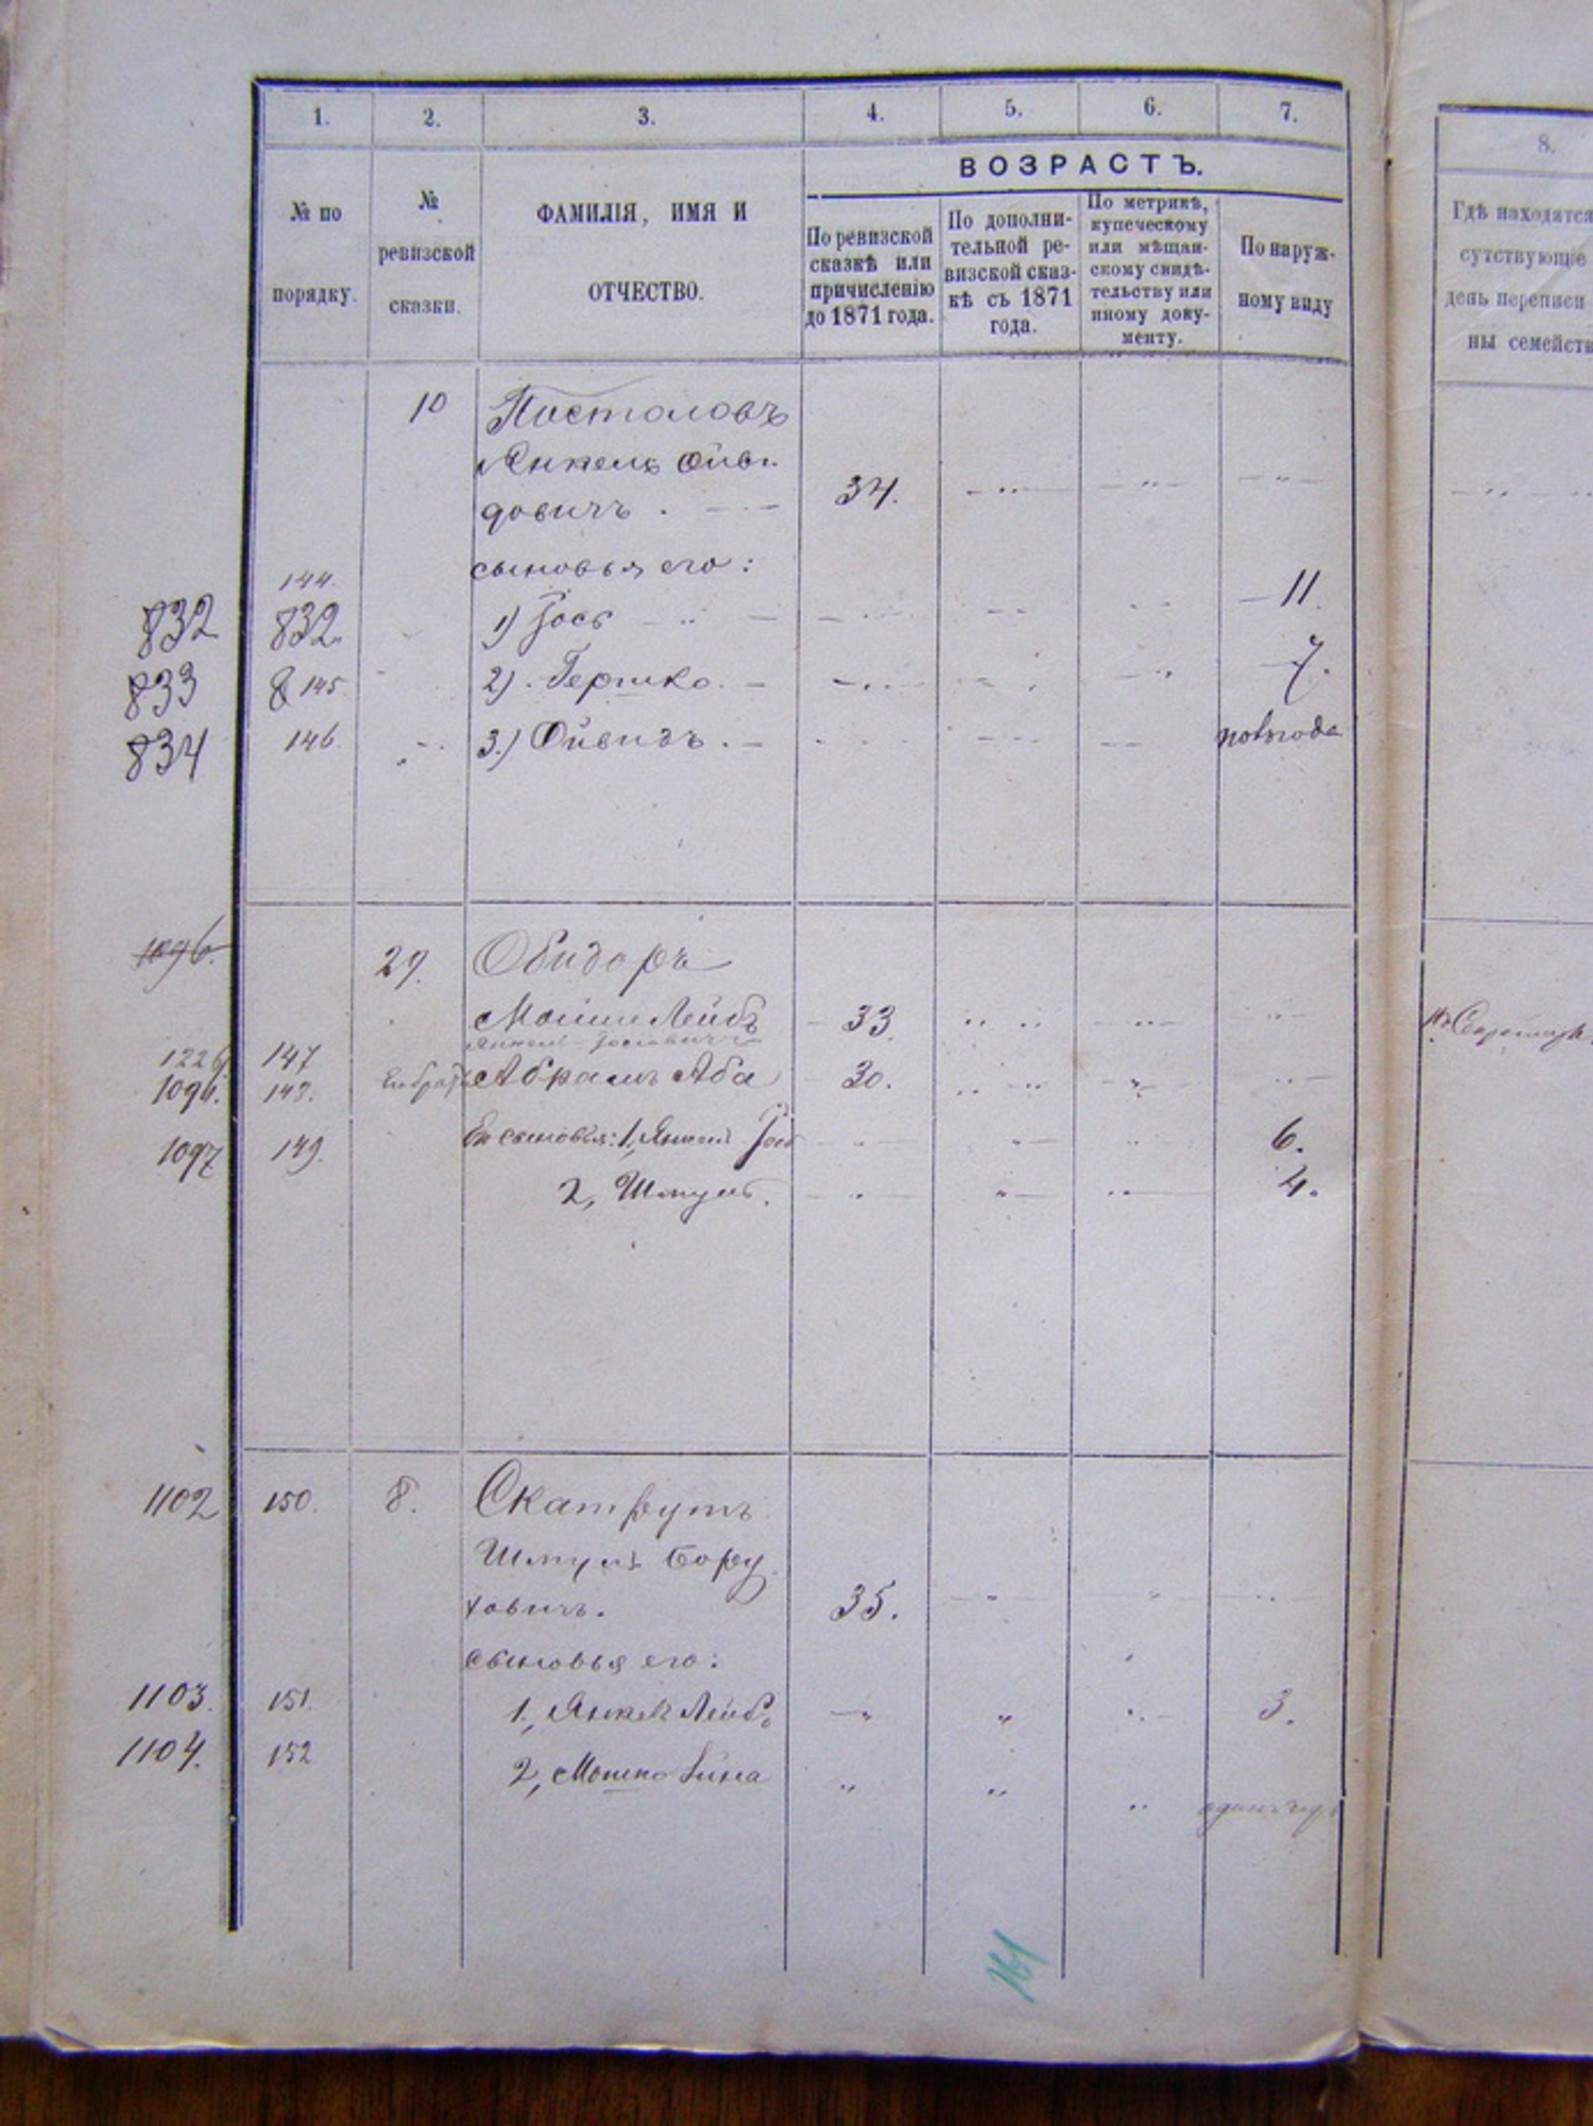 1. 2. 3. 4. 5. 6. 7. 8.
ВОЗРАСТЪ.
№ по
порядку.
№
ревизской
сказки.
ФАМИЛІЯ, ИМЯ И
ОТЧЕСТВО.
По ревизской
сказкѣ или
причисленію
до 1871 года.
По дополни-
тельной ре-
визской сказ-
кѣ съ 1871
года.
По метрикѣ,
купеческому
или мѣщан-
скому свидѣ-
тельству или
иному доку-
менту.
По наруж-
ному виду
Гдѣ находятся
сутствующіе
день переписи
ны семейств
10 Постоловъ
Янкель Ойви
довичъ . 34.
сыновья его:
144.
832 832. 1) Іось 11.
833 8 145. 2). Гершко. 7.
834 146. 3.) Ойвидъ. полгода
1096. 29. Обидоръ
Мойше Лейбъ 33.
Янкель Іосіовичъ
1226 147 Его братъ Абрамъ Аба 30.
1096. 148. Его сыновья: 1, Янкель Іось 6.
1097 149. 2, Шмуль. 4.
1102 150. 8. Скатрутъ
Шмуль Бору
ховичъ. 35.
сыновья его:
1103. 151. 1, Янкель Лейбъ 3.
1104. 152 2, Мошко
161